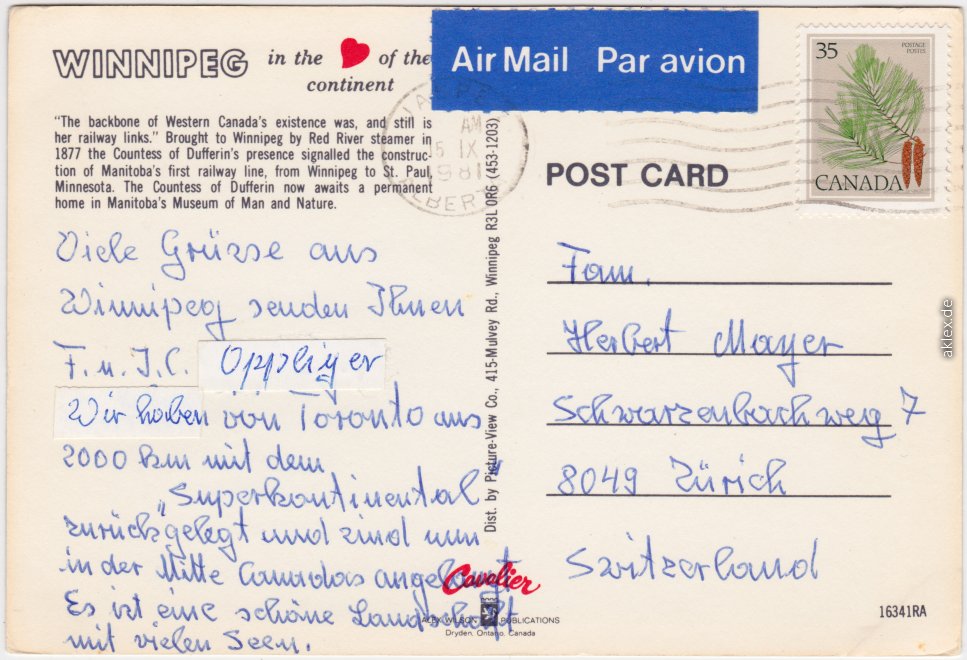 WINNIPEG in the of the continent
Air Mail Par avion
35
POSTAGE
POSTES
CANADA
"The backbone of Western Canada's existence was, and still is
her railway links." Brought to Winnipeg by Red River steamer in
1877 the Countess of Dufferin's presence signalled the construc-
tion of Manitoba's first railway line, from Winnipeg to St. Paul,
Minnesota. The Countess of Dufferin now awaits a permanent
home in Manitoba's Museum of Man and Nature.
AM
15 IX
1981
POST CARD
Viele Grüsse aus
Winnipeg senden Ihnen
F. u. J.C. Oppliger
Wir haben von Toronto aus
2000 km mit dem
"Superkontinental"
zurückgelegt und sind nun
in der Mitte Canadas angelangt
Es ist eine schöne Landschaft
mit vielen Seen.
Dist. by Picture-View Co., 415-Mulvey Rd., Winnipeg R3L 0R6 (453-1203)
Fam.
Herbert Mayer
Schwarzenbachweg 7
8049 Zürich
Switzerland
Cavalier
ALEX WILSON PUBLICATIONS
Dryden, Ontario, Canada
16341RA
aklex.de